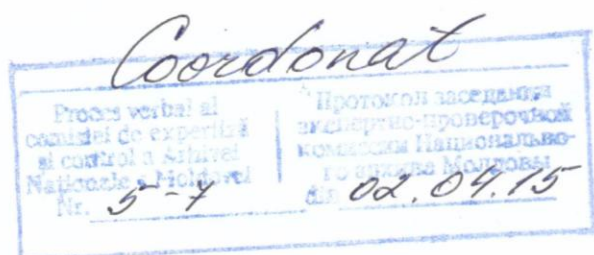 Coordonat
Proces verbal al
comisiei de expertiză
și control a Arhivei
Naționale a Moldovei
Nr. 5-7
Протокол заседания
экспертно-проверочной
комиссии Национально-
го архива Молдовы
din 02.04.15